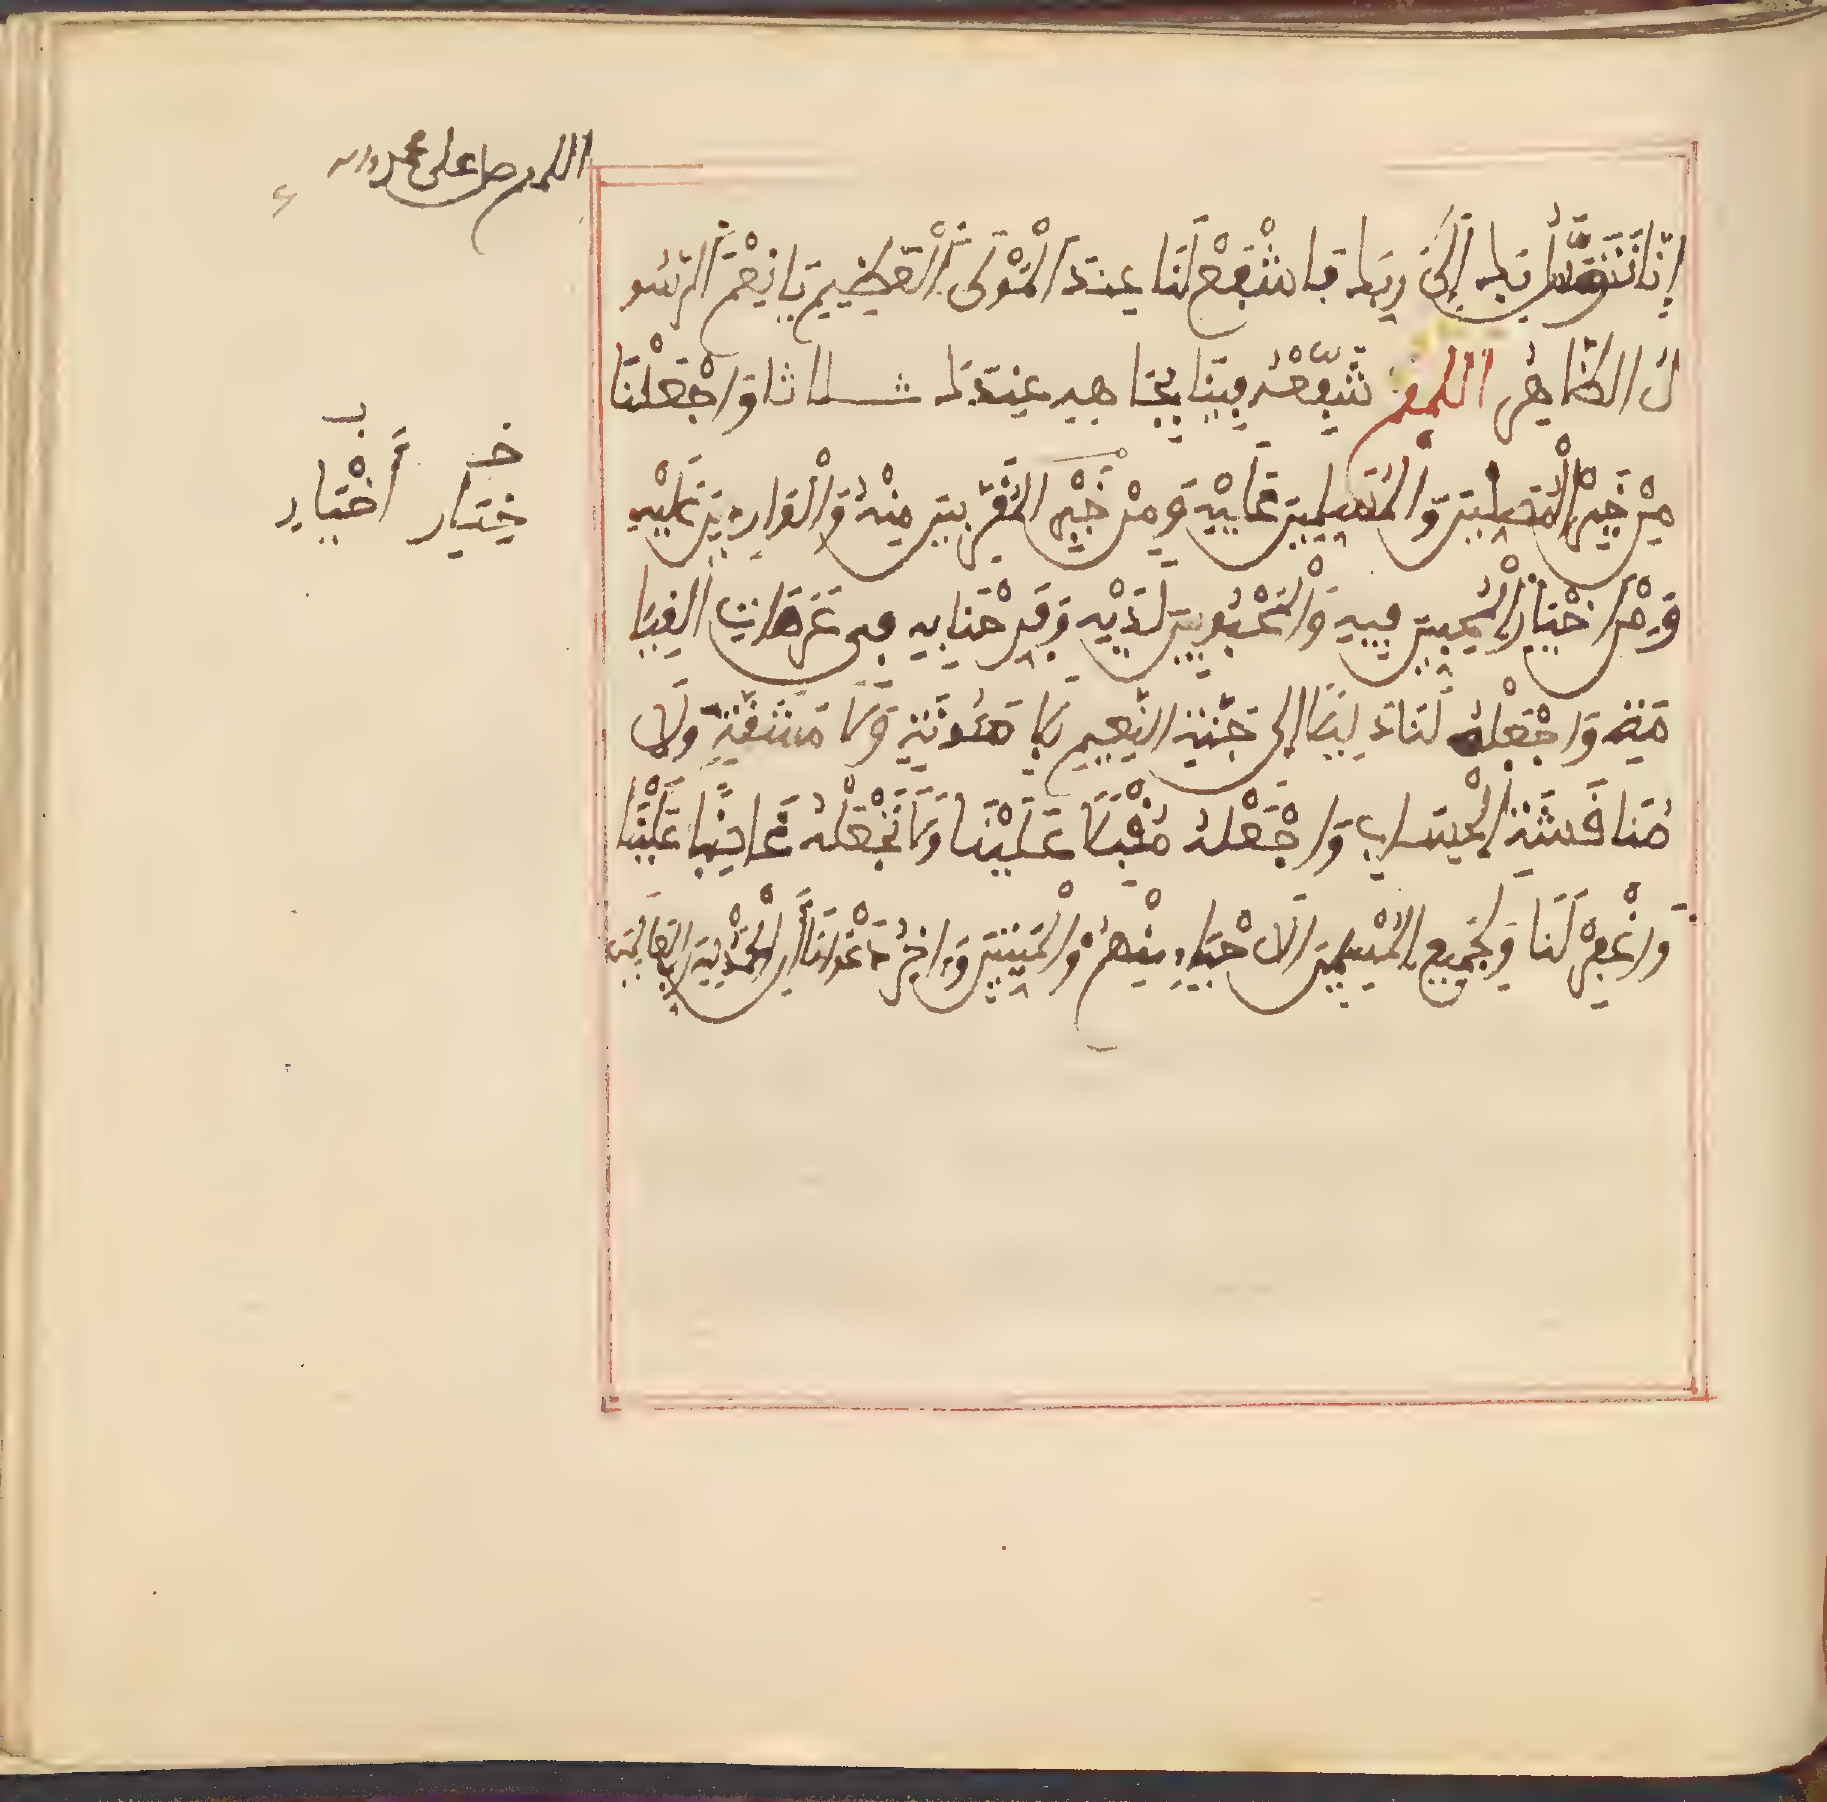 اللهم صل على محمد وآله
إِنَّا نَتَوَسَّلُ بِكَ إِلَىٰ رَبِّكَ فَاشْفَعْ لَنَا عِنْدَ الْمَوْلَى الْعَظِيمِ يَا نِعْمَ الرَّسُو
لُ الطَّاهِرُ اللهم شَفِّعْهُ فِينَا بِجَاهِهِ عِنْدَكَ ثلاثا وَاجْعَلْنَا
مِنْ خَيْرِ الْمُصَلِّينَ وَالْمُسَلِّمِينَ عَلَيْهِ وَمِنْ خَيْرِ الْمُقَرَّبِينَ مِنْهُ وَالْوَارِدِينَ عَلَيْهِ
وَمِنْ اخْيَارِ الْمُحِبِّينَ فِيهِ وَالْمَحْبُوبِينَ لَدَيْهِ وَفَرِّحْنَا بِهِ فِي عَرَصَاتِ الْقِيَا
مَةِ وَاجْعَلْهُ لَنَا دَلِيلًا إِلَى جَنَّةِ النَّعِيمِ بِلَا مَئُونَةٍ وَلَا مَشَقَّةٍ وَلَا
مُنَاقَشَةِ الْحِسَابِ وَاجْعَلْهُ مُقْبِلًا عَلَيْنَا وَلَا تَجْعَلْهُ غَاضِبًا عَلَيْنَا
وَاغْفِرْ لَنَا وَلِجَمِيعِ الْمُسْلِمِينَ الْأَحْيَاءِ مِنْهُمْ وَالْمَيِّتِينَ وَآخِرُ دَعْوَانَا أَنِ الْحَمْدُ لِلَّهِ رَبِّ الْعَالَمِينَ
خـ
ختيار أخيار